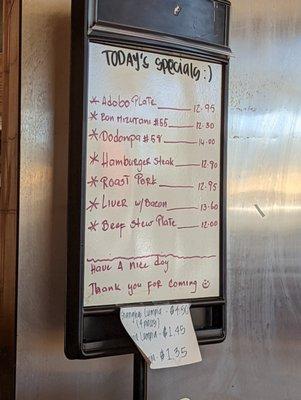 TODAY'S SPECIALS :)
* Adobo Plate ____ 12.95
* Ron Mizutani #55 ____ 12.30
* Dodonpa #58 ____ 14.00
* Hamburger Steak ____ 12.90
* Roast Pork ____ 12.95
* Liver w/ Bacon ____ 13.60
* Beef Stew Plate ____ 12.00
Have a nice day
Thank you for coming ☺
Lumpia - $4.50
Lumpia - $1.45
$1.35